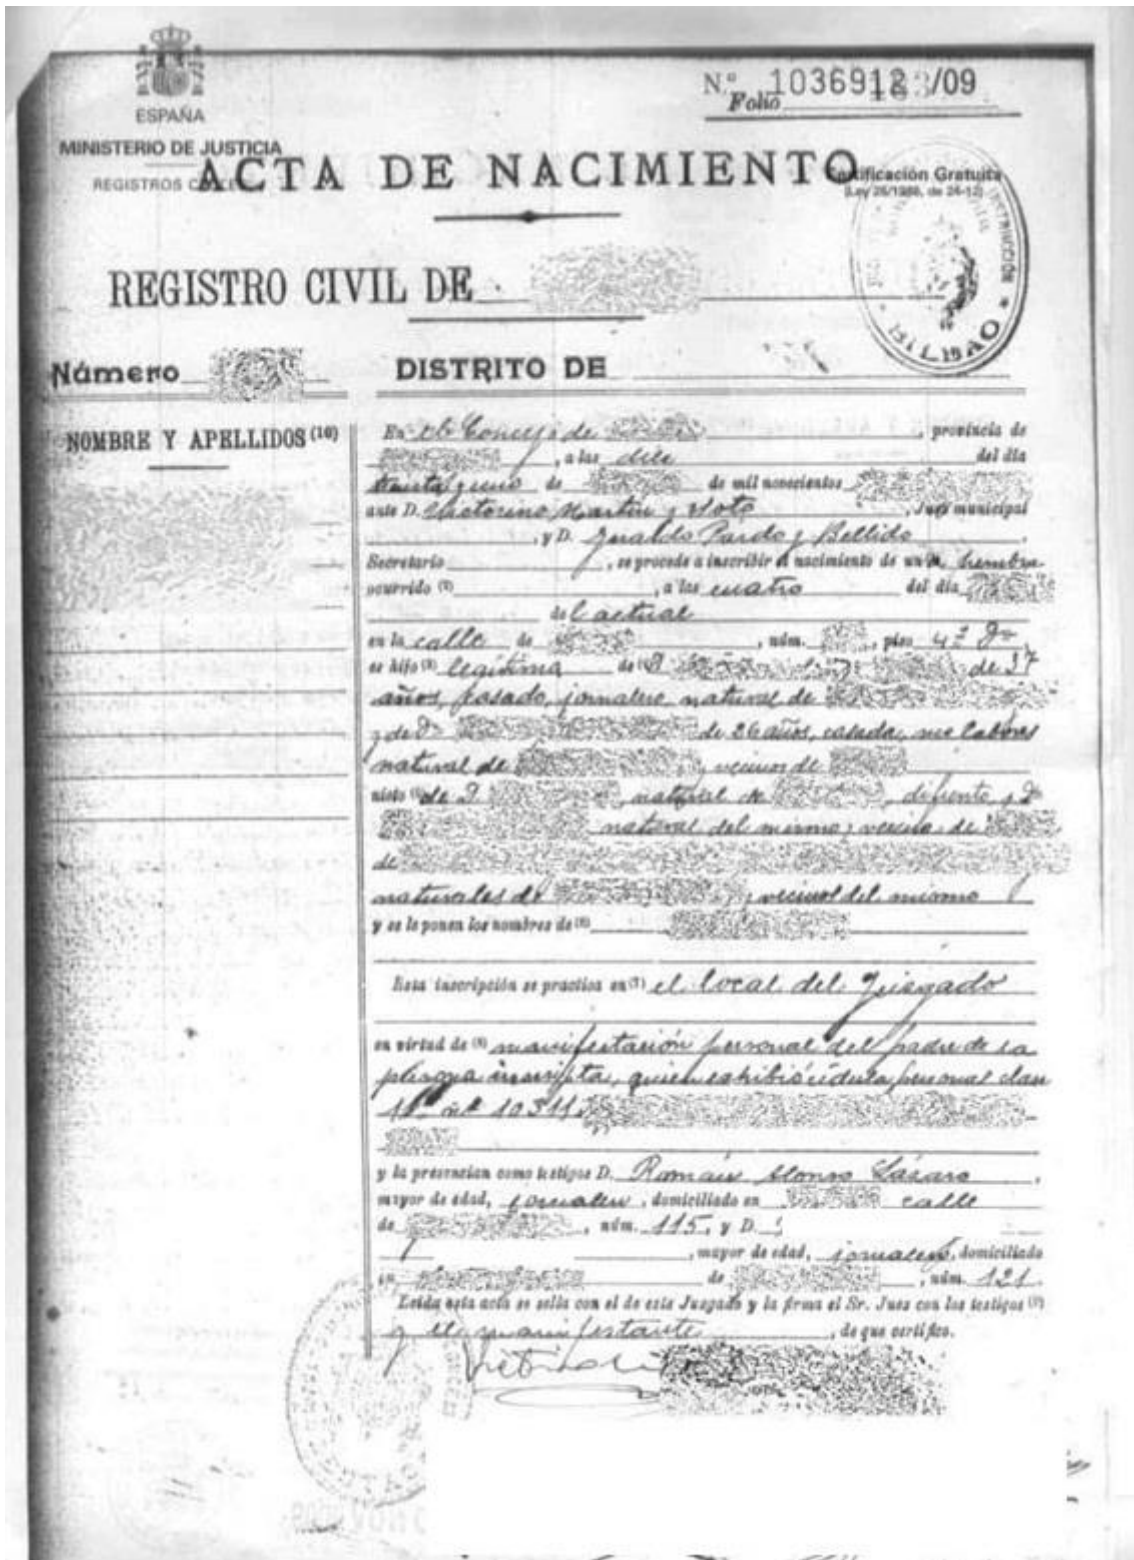 ESPAÑA
MINISTERIO DE JUSTICIA
REGISTROS
N.º 103691 /09
Folio
ACTA DE NACIMIENTO
Certificación Gratuita
(Ley 25/1986, de 24-12)
BILBAO
REGISTRO CIVIL DE
Número
DISTRITO DE
NOMBRE Y APELLIDOS (10)
En de , provincia de
, a las diez del día
treinta y uno de de mil novecientos
ante D. Victorino Martin y Soto , Juez municipal
, y D. Pardo y Bellido
Secretario , se procede a inscribir el nacimiento de una hembra
ocurrido (2) , a las cuatro del día
del actual
en la calle de , núm. , piso 4º
es hijo (3) legítima de (4) D de 37
años, casado, jornalero, natural de
y de Dª de 26 años, casada, sus labores
natural de y vecinos de
nieto (5) de D natural de , difunto y Dª
natural del mismo y vecina de
de
naturales de y vecinos del mismo
y se le ponen los nombres de (6)
Esta inscripción se practica en (7) el local del Juzgado
en virtud de (8) manifestación personal del padre de la
inscripta, quien exhibió cédula personal clase
11ª
y la presencian como testigos D. Román Alonso Lázaro ,
mayor de edad, jornalero , domiciliado en calle
de , núm. 115, y D.
, mayor de edad, jornalero, domiciliado
en de , núm. 121
Leída esta acta se sella con el de este Juzgado y la firma el Sr. Juez con los testigos (9)
y el manifestante , de que certifico.